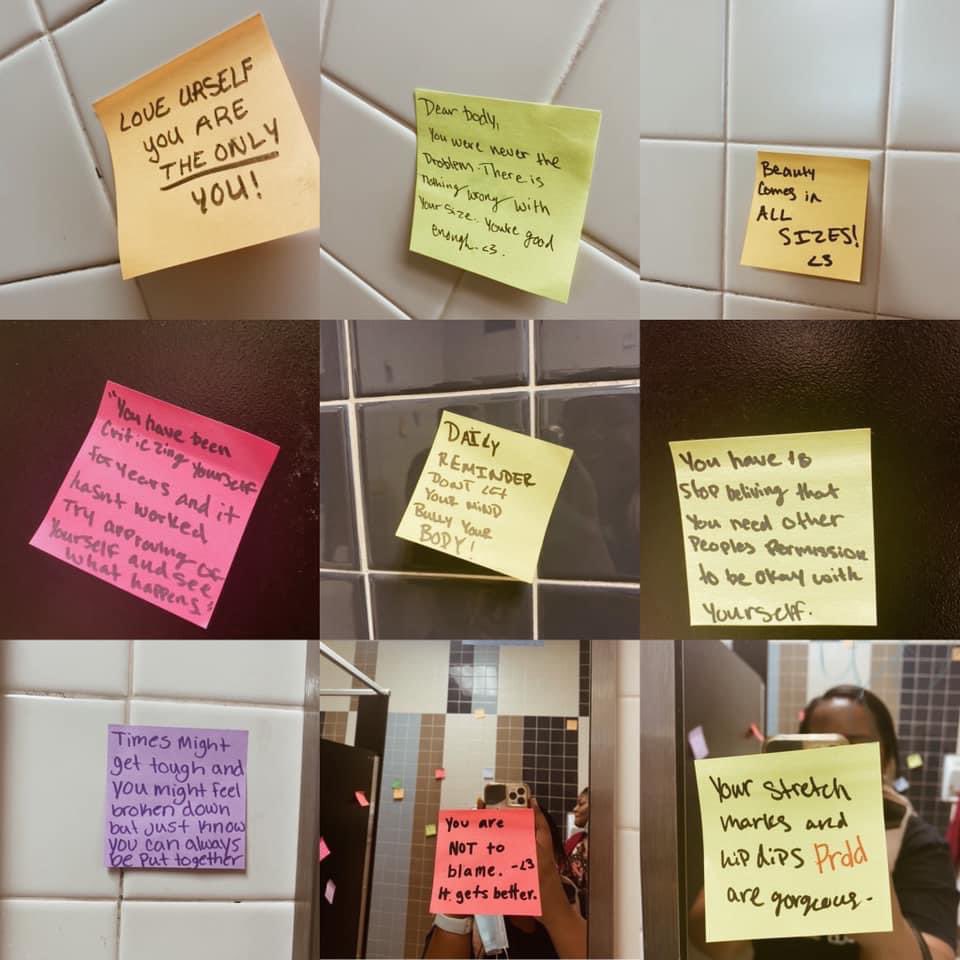 LOVE URSELF
YOU ARE
THE ONLY
YOU!
Dear body,
You were never the
Problem. There is
nothing wrong with
Your size. You're good
enough. <3.
Beauty
Comes in
ALL
SIZES!
<3
"You have been
Criticzing yourself
for years and it
hasnt worked
Try approving of
Yourself and see
what happens"
DAILY
REMINDER
DONT LET
YOUR MIND
BULLY YOUR
BODY!
You have to
Stop beliving that
You need other
Peoples Permission
to be okay with
Yourself.
Times might
get tough and
you might feel
broken down
but just know
you can always
be put together
You are
NOT to
blame. -<3
It gets better.
Your stretch
marks and
hip dips Prdd
are gorgeous-